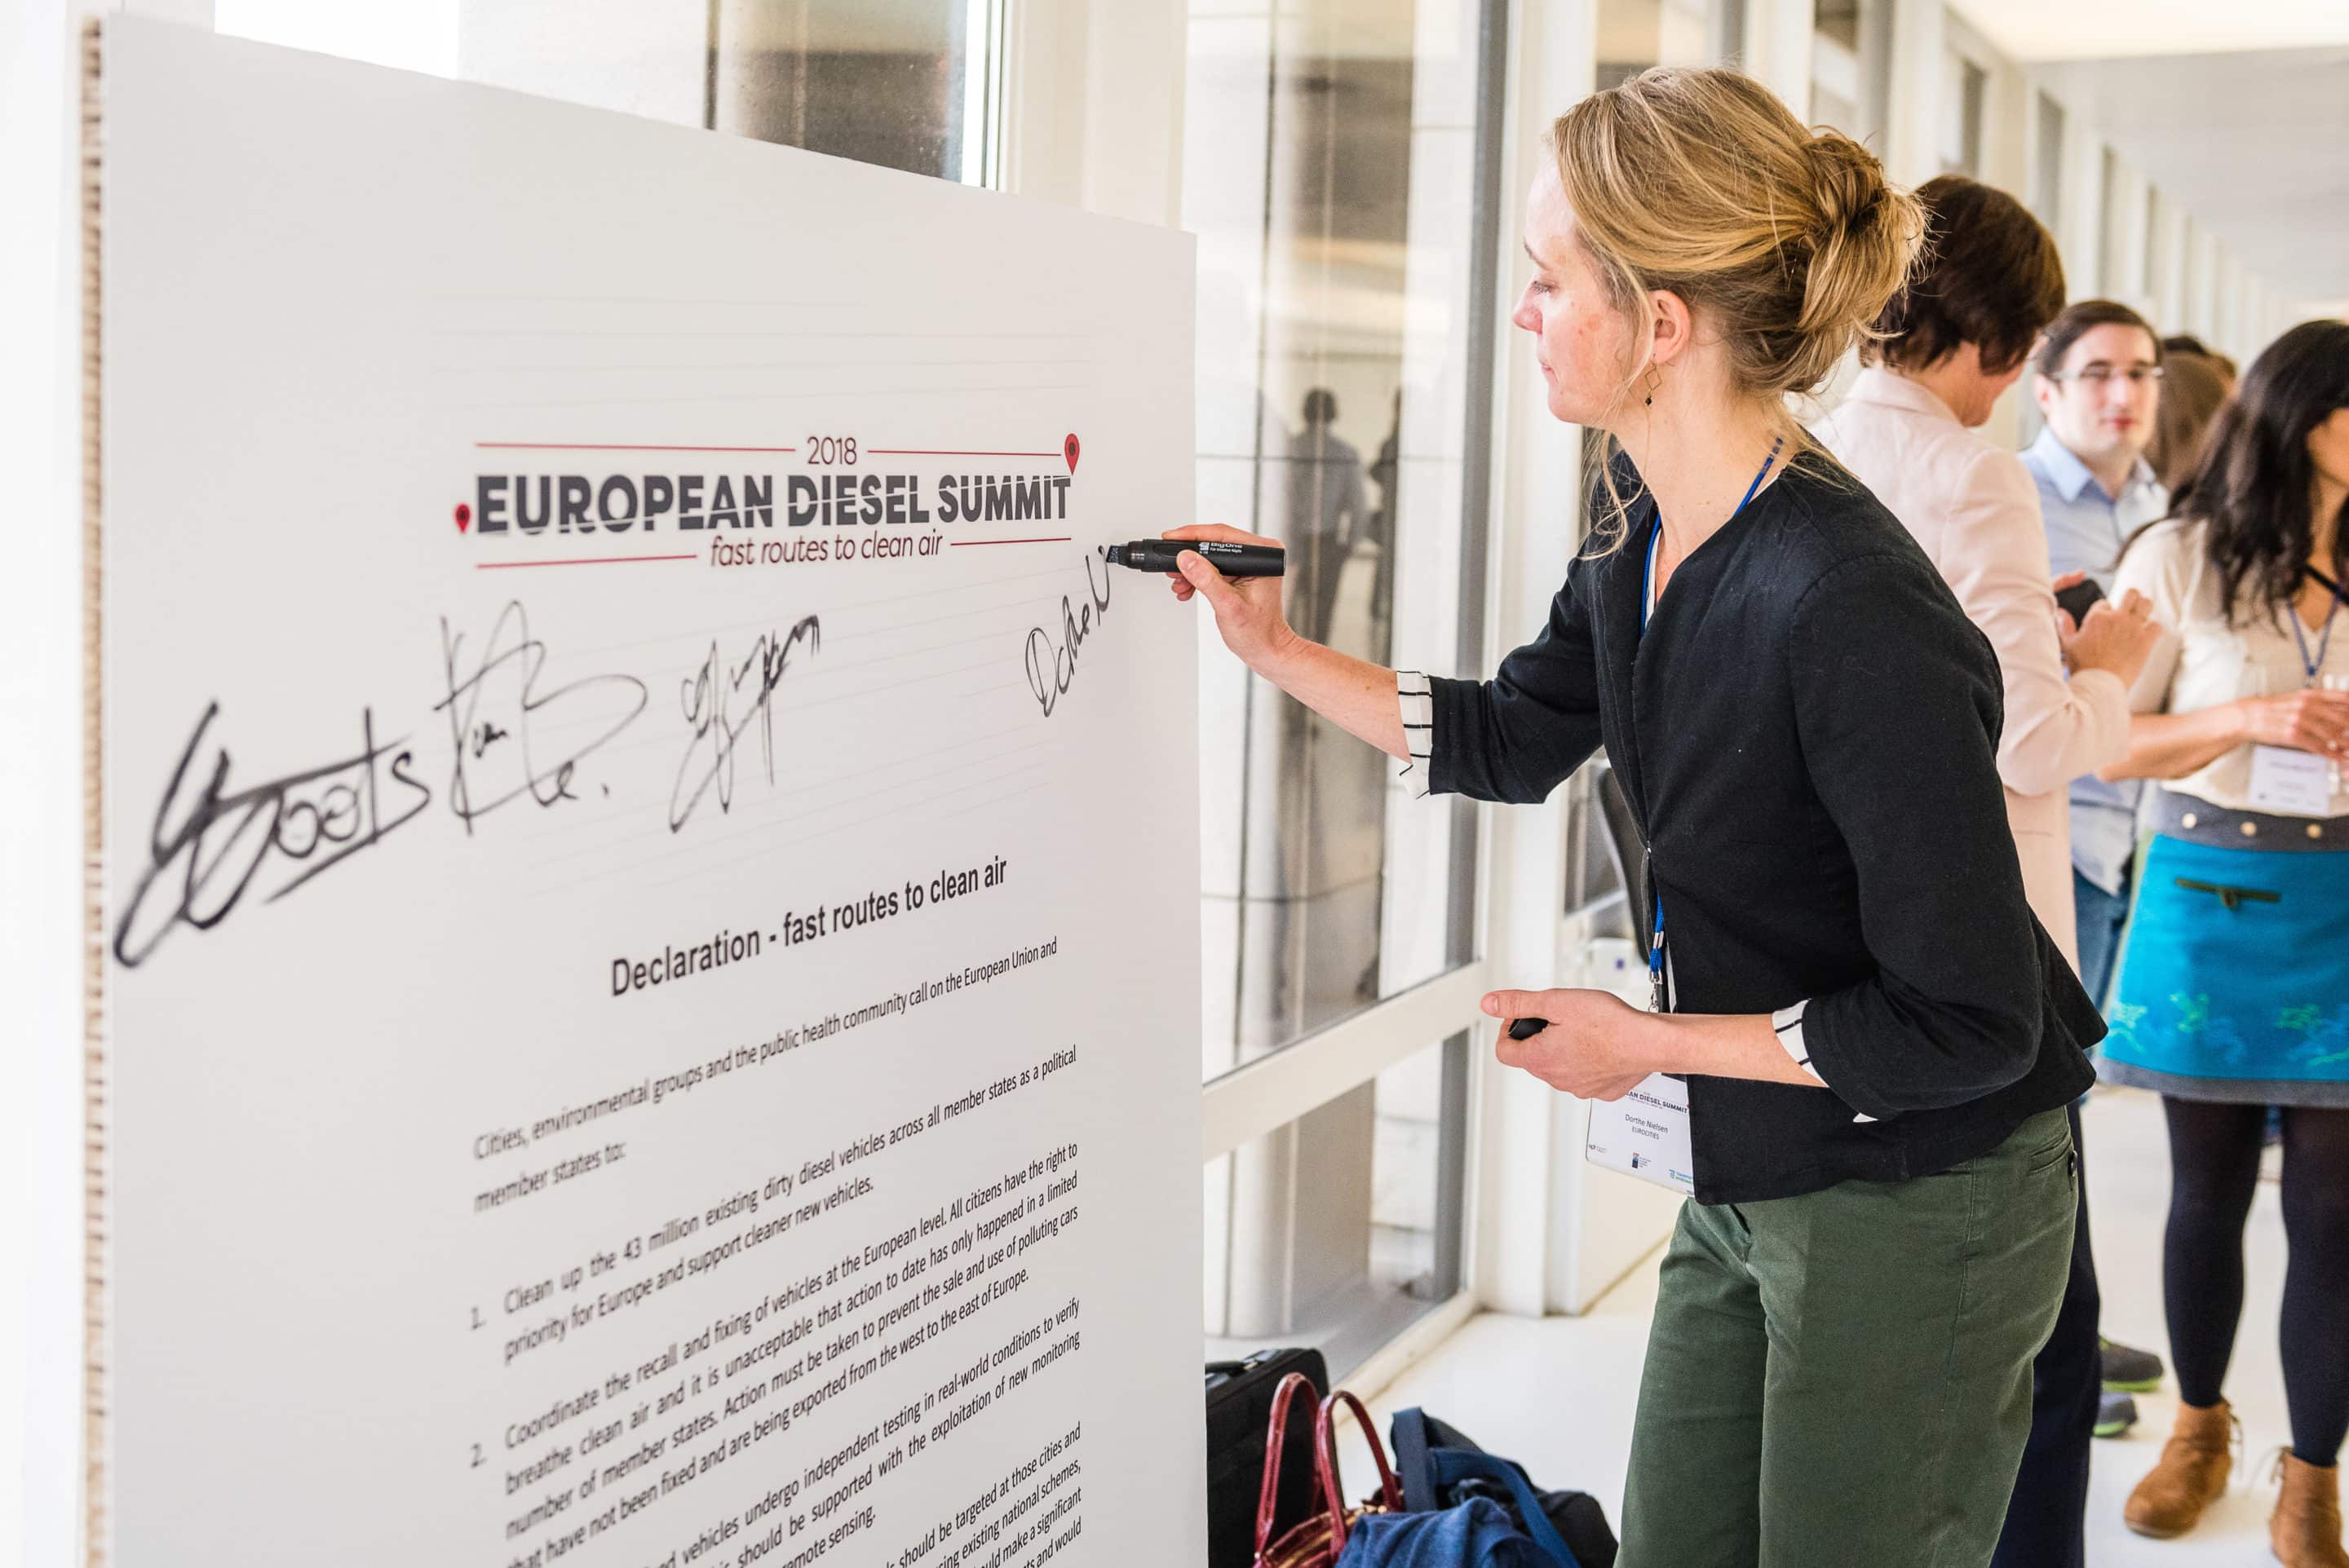 2018
EUROPEAN DIESEL SUMMIT
fast routes to clean air
Declaration - fast routes to clean air
Cities, environmental groups and the public health community call on the European Union and
member states to:
1. Clean up the 43 million existing dirty diesel vehicles across all member states as a political
priority for Europe and support cleaner new vehicles.
2. Coordinate the recall and fixing of vehicles at the European level. All citizens have the right to
breathe clean air and it is unacceptable that action to date has only happened in a limited
number of member states. Action must be taken to prevent the sale and use of polluting cars
that have not been fixed and are being exported from the west to the east of Europe.
vehicles undergo independent testing in real-world conditions to verify
should be supported with the exploitation of new monitoring
remote sensing.
should be targeted at those cities and
existing national schemes,
make a significant
and would
BigOne
EAN DIESEL SUMMIT
Dorthe Nielsen
EUROCITIES